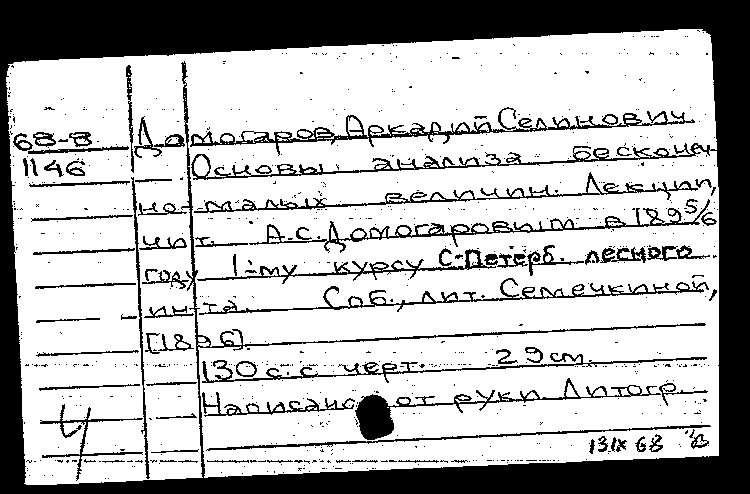 68-8 Домогаров, Аркадий Селинович.
1146 Основы анализа бесконеч-
но-малых величин. Лекции,
чит. А.С. Домогаровым в 1895/6
году 1-му курсу С.-Петерб. лесного
ин-та. Спб., лит. Семечкиной,
[1896].
130 с. с черт. 29 см.
Написано от руки. Литогр.
13 IX 68